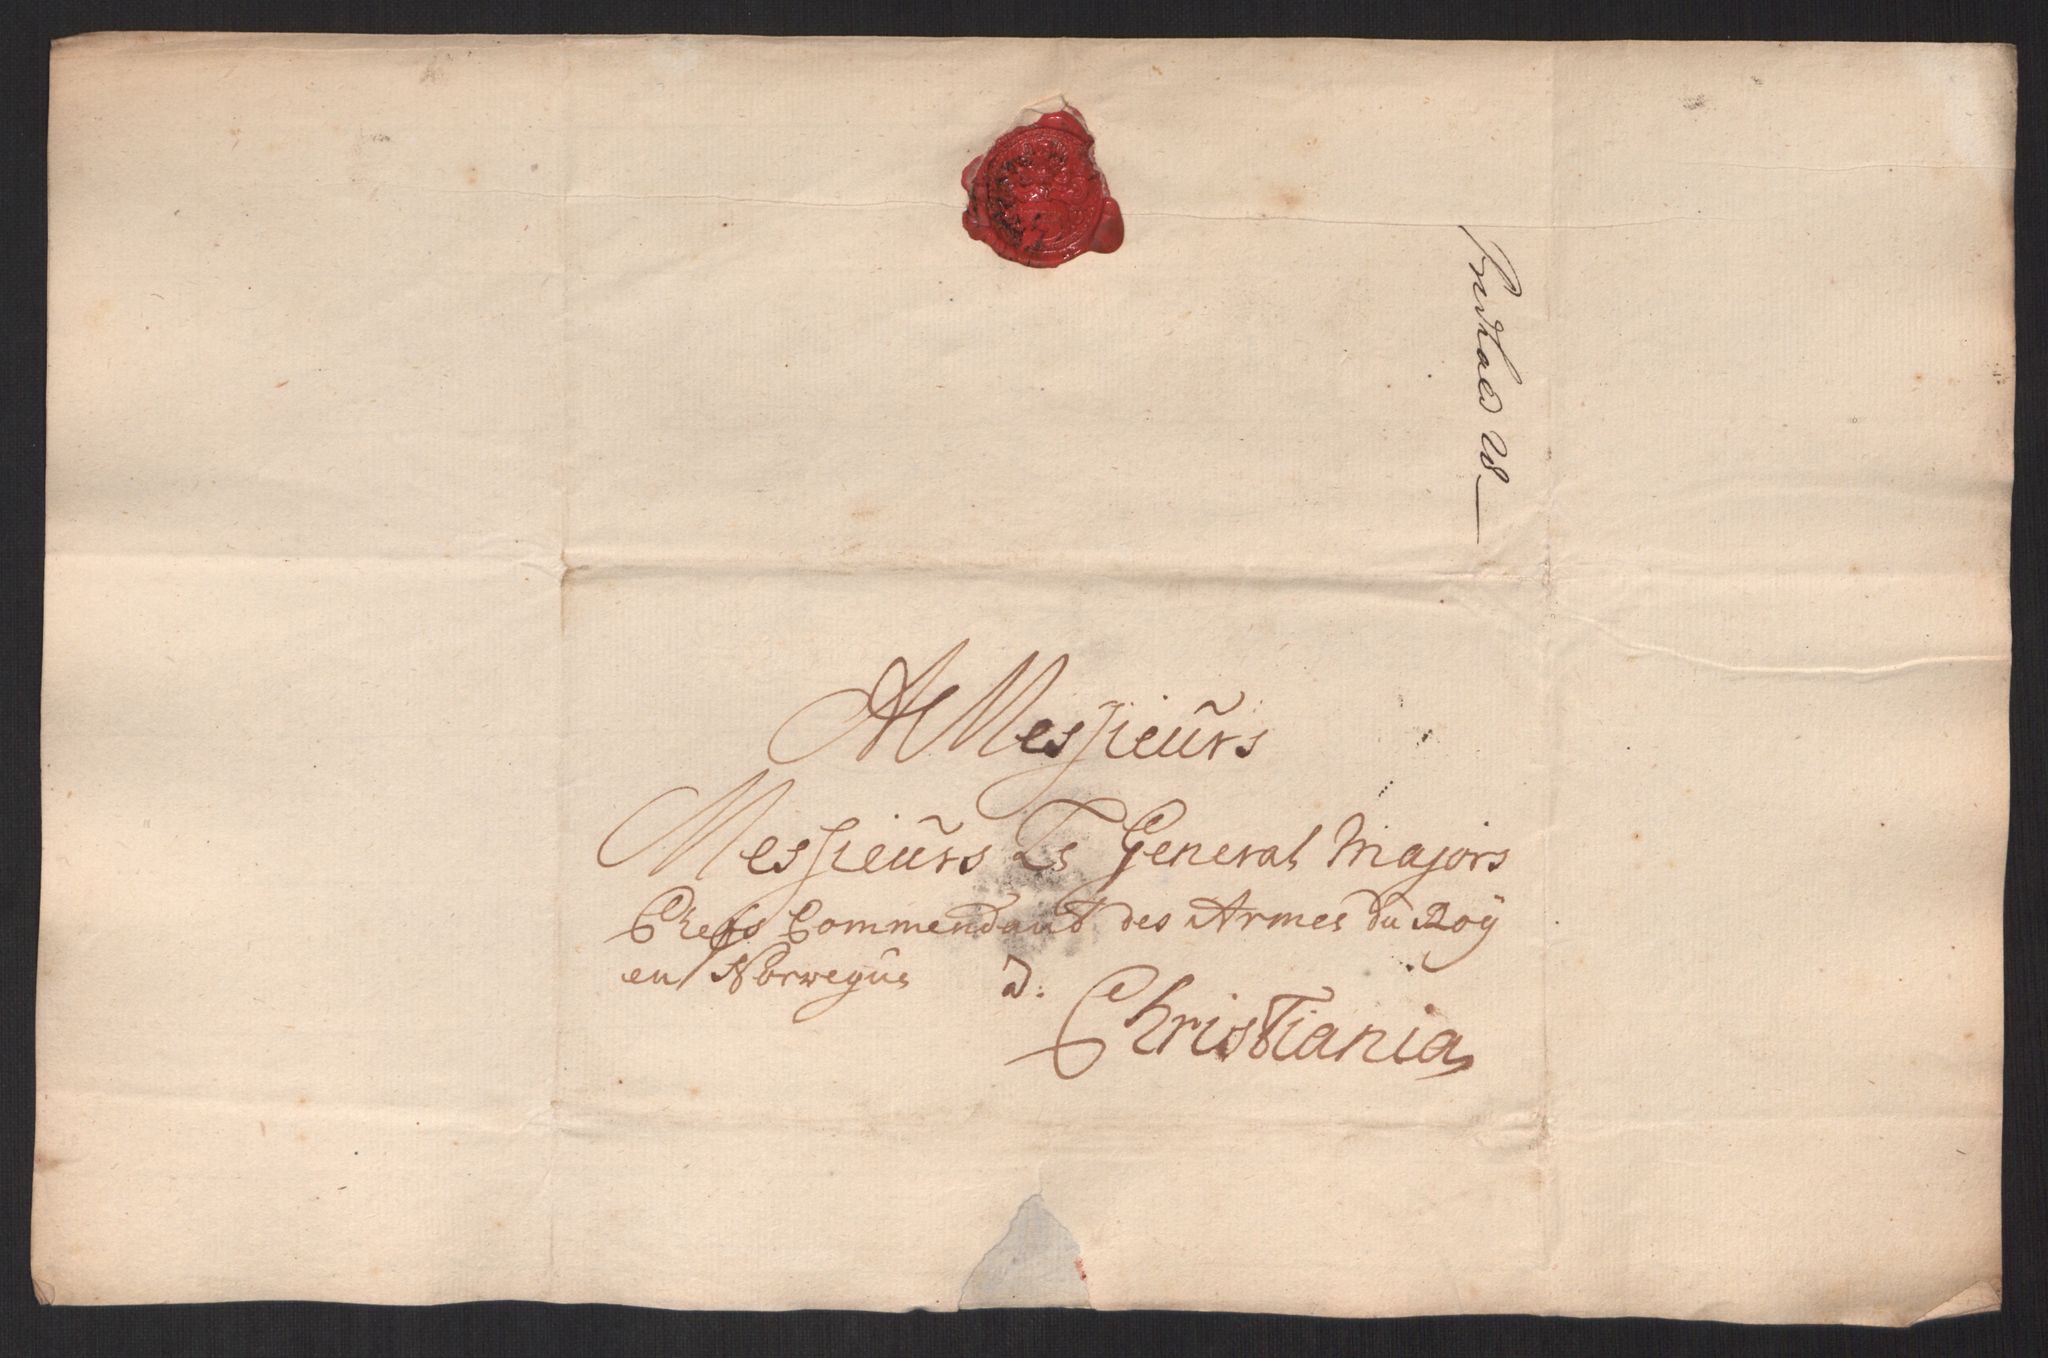 Fridhald 28
A Messieurs
Messieurs Ls General Majors
Chefs Commendant des Armes du Roÿ
en Norwegue d.
Christiania